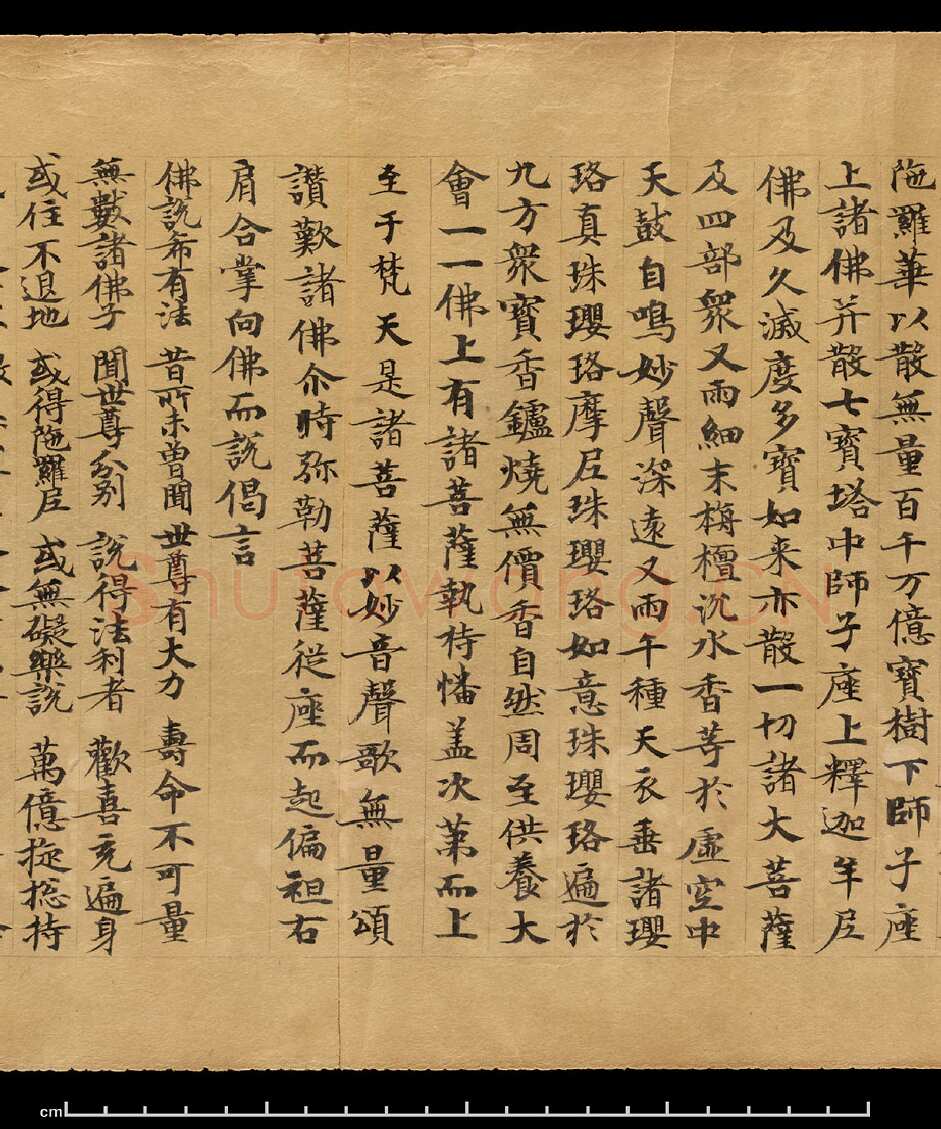 陁羅華以散無量百千万億寶樹下師子座
上諸佛并散七寶塔中師子座上釋迦牟尼
佛及久滅度多寶如来亦散一切諸大菩薩
及四部衆又雨細末栴檀沉水香等於虛空中
天鼓自鳴妙聲深遠又雨千種天衣垂諸瓔
珞真珠瓔珞摩尼珠瓔珞如意珠瓔珞遍於
九方衆寶香鑪燒無價香自然周至供養大
會一一佛上有諸菩薩執持幡盖次第而上
至于梵天是諸菩薩以妙音聲歌無量頌
讃歎諸佛尒時弥勒菩薩從座而起偏袒右
肩合掌向佛而說偈言
佛說希有法 昔所未曾聞 世尊有大力 壽命不可量
無數諸佛子 聞世尊分別 說得法利者 歡喜充遍身
或住不退地 或得陁羅尼 或無礙樂說 萬億旋捴持
Shufawang.CN
cm